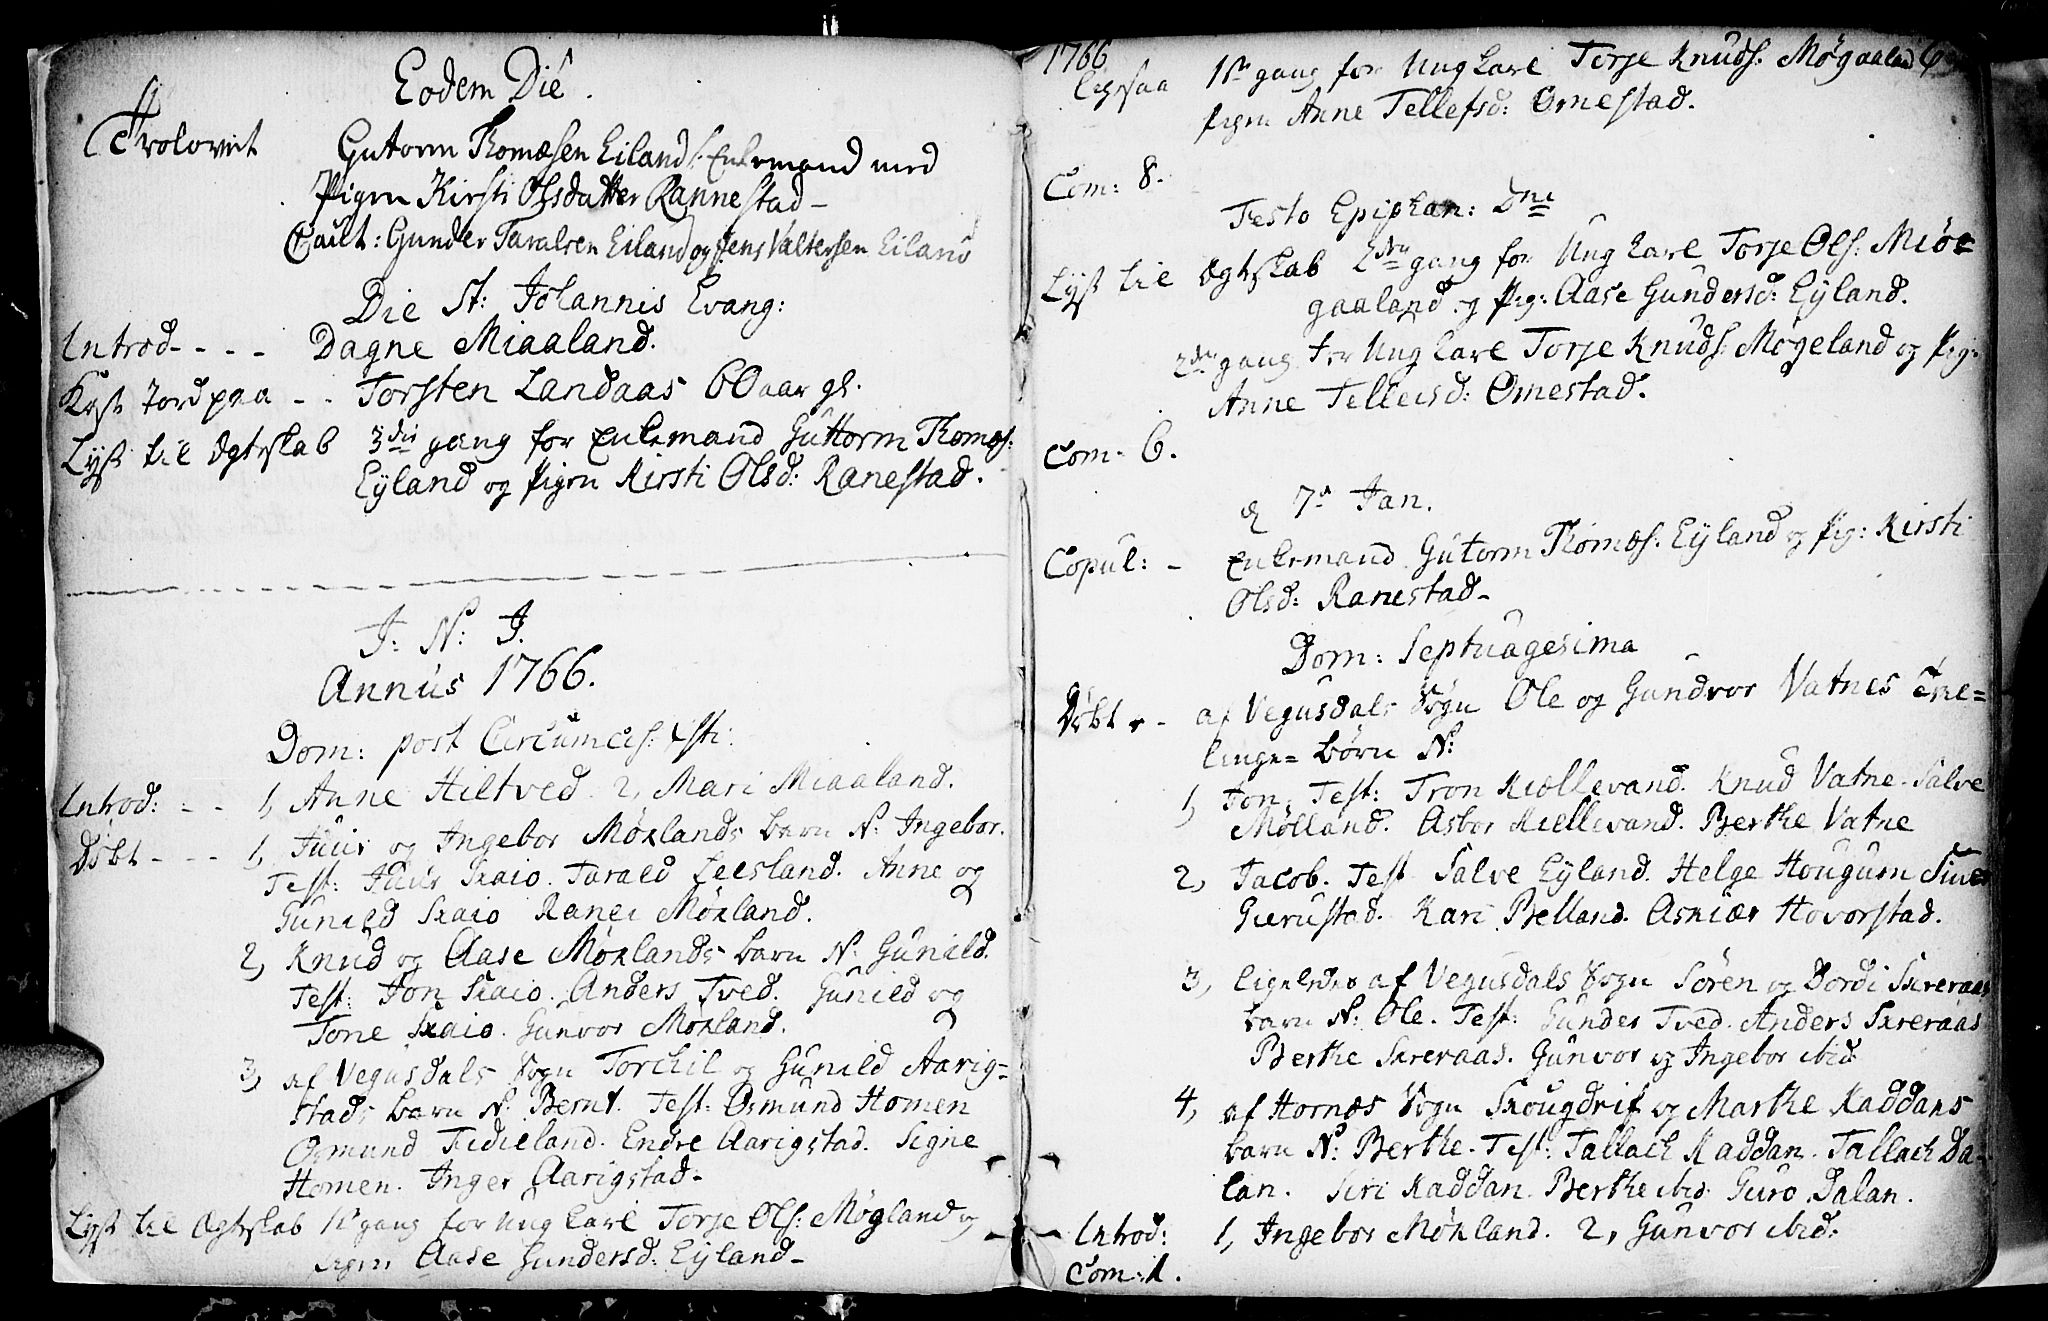 Eodem Die.
Trolovet Gutorm Thomæsen Eiland: Enkemand med
Pigen Kirsti Olsdatter Rannestad-
Caut: Gunder Taralsen Eiland og Jens Valtersen Eiland
Die St: Johannis Evang:
Introd- - - - Dagne Miaaland.
Kast Jord paa - - Torsten Landaas 60 aar gl.
Lyst til Ægteskab 3die gang for Enkemand Guttorm Thomæs:
Eyland og Pigen Kirsti Olsd: Ranestad.
J: N: J.
Annus 1766.
Dom: post Circumcis: Xsti.
Introd: - - 1, Anne Hiltved. 2, Mari Miaaland.
Døbt - - - 1, Juur og Ingebor Møklands barn N: Ingebor.
Test: Juur Skaio. Tarald Leesland. Anne og
Gunild Skaio Ranei Møkland.
2, Knud og Aase Møklands barn N: Gunild.
Test: Jon Skaio. Anders Tved. Gunild og
Tone Skaio. Gunvor Møkland.
3, af Vegusdals Sogn Torchil og Gunild Aarig-
stads barn N: Bernt. Test: Osmund Homen
Osmund Fidieland. Endre Aarigstad. Signe
Homen. Inger Aarigstad-
Lyst til Ægteskab 1ste gang for Ung Karl Torje Ols: Møgland og
Pigen Aase Gundersd: Eyland-
1766
Ligesaa 1ste gang for Ung Karl Torje Knuds: Møgaaland og
Pigen Anne Tellefsd: Omestad.
Com: 8.
Festo Epiphan: Dni
Lyst til Ægteskab 2den gang for Ung Karl Torje Ols: Miøe
gaaland og Pig: Aase Gundersd: Eyland.
2den gang for Ung Karl Torje Knuds: Møgeland og Pig:
Anne Tellefsd: Omestad.
Com- 6.
d 7de Jan.
Copul: - Enkemand Gutorm Thomæs: Eyland og Pig: Kirsti
Olsd: Ranestad-
Dom: Septuagesima
Døbte - af Vegusdals Sogn Ole og Gundvor Vatnes Tvil=
linge= børn N:
1, Jon. Test: Tron Kiellevand. Knud Vatne. Salve
Mølland. Asbor Kiellevand. Berthe Vatne
2, Jacob. Test Salve Eyland. Helge Hougum
Gierustad. Kari Belland. Askier Hovorstad.
3, ligeledes af Vegusdals Sogn Søren og Dordi Skreraas
barn N: Ole. Test: Gunder Tved. Anders Skreraas
Berthe Skreraas. Gunvor og Ingebor ibid.
4, af Hornæs Sogn Skougdrif og Marthe Kaddans
barn N: Berthe. Test: Tallach Kaddan. Tallach Da-
lan. Siri Kaddan. Berthe ibid. Guro Dalan.
Introd: 1, Ingebor Møkland. 2, Gunvor ibid:
Com: 1.